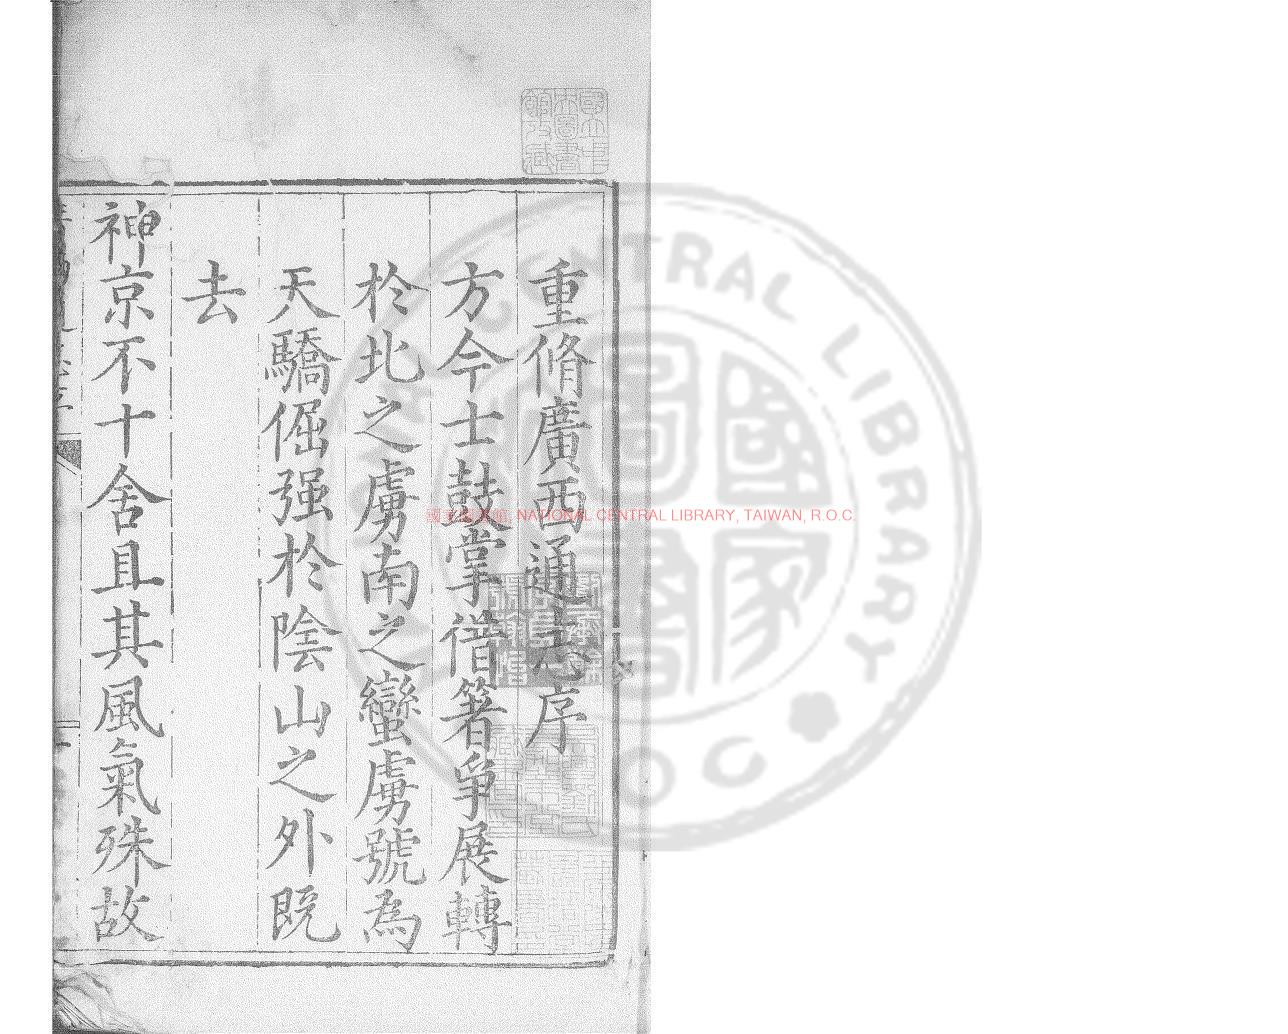 重脩廣西通志序
方今士鼓掌借箸爭展轉
於北之虜南之蠻虜號為
天驕倔强於陰山之外既
去
神京不十舍且其風氣殊故
國家圖書館, NATIONAL CENTRAL LIBRARY, TAIWAN, R.O.C.
國立中央圖書館收藏